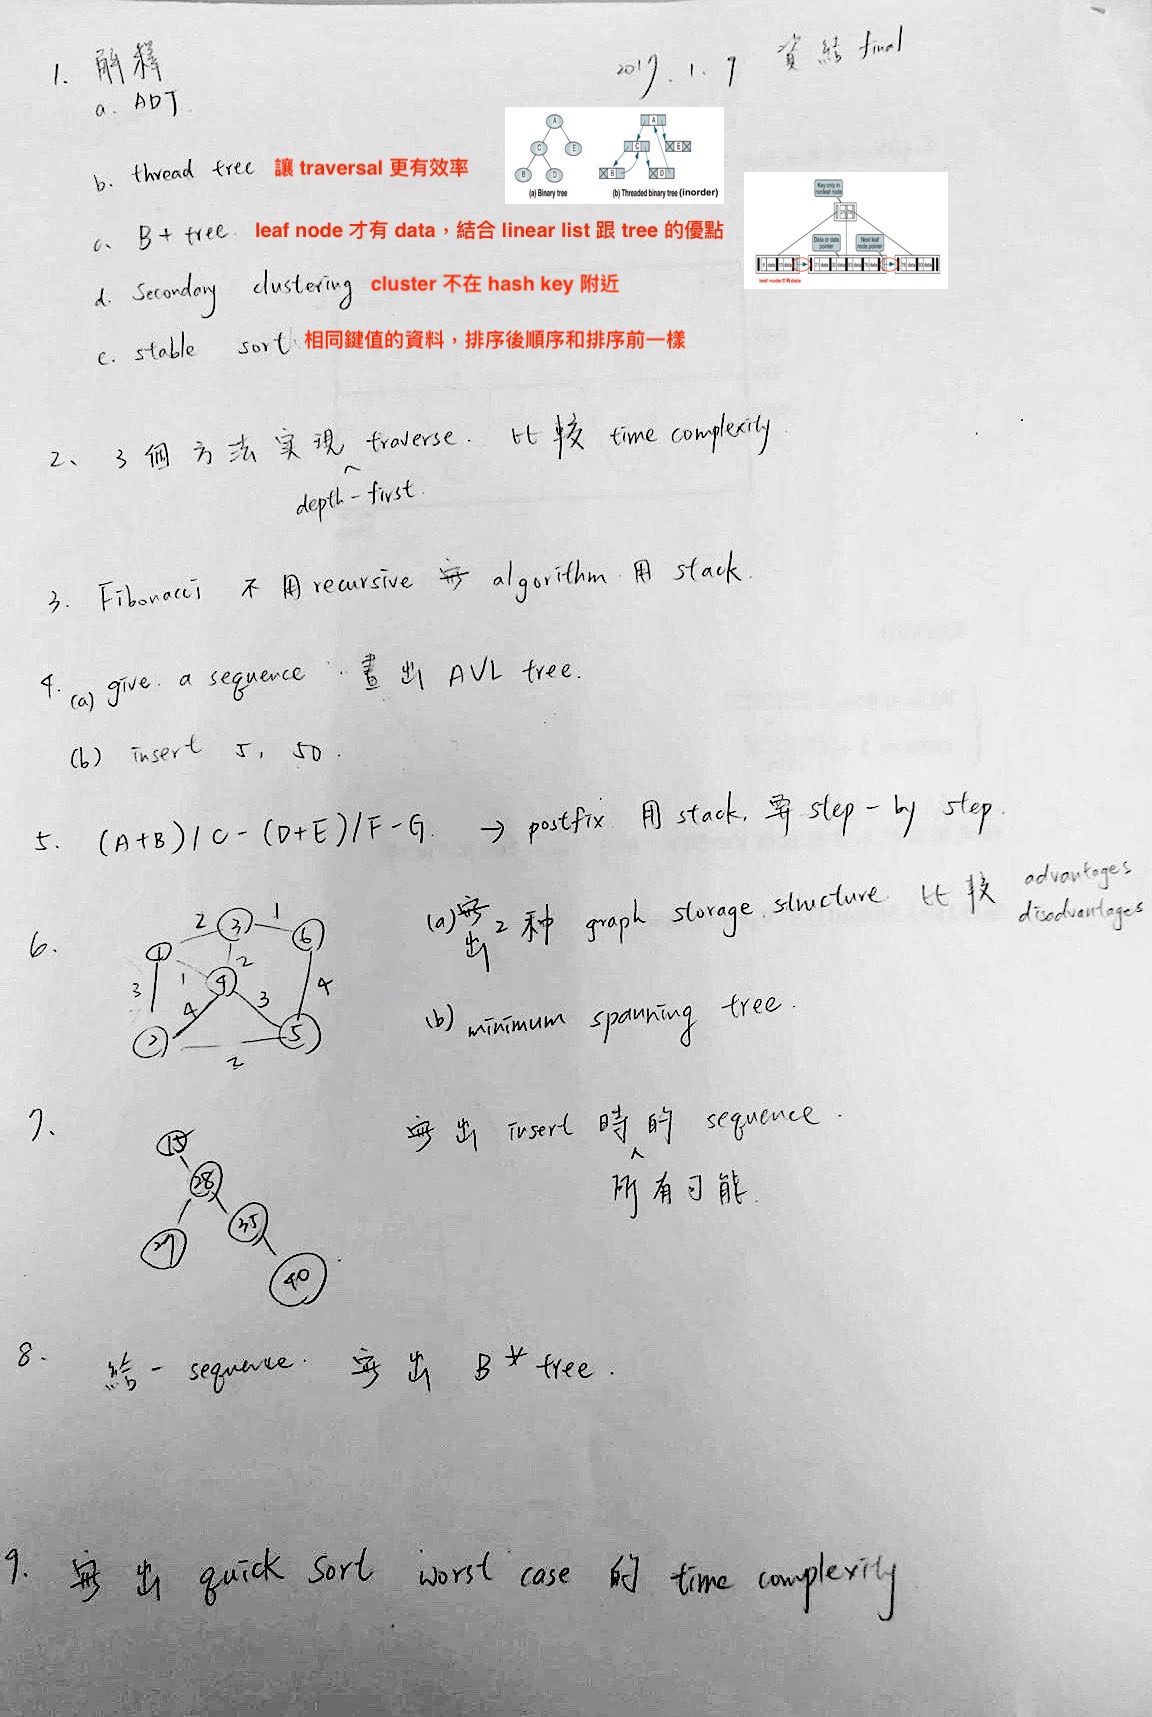 2017.1.7 資結 final
1. 解釋
a. ADT
b. thread tree 讓 traversal 更有效率
A
C
E
B
D
(a) Binary tree
A
C
E
B
D
(b) Threaded binary tree (inorder)
c. B+ tree. leaf node 才有 data，結合 linear list 跟 tree 的優點
Key only in
nonleaf node
Data or data
pointer
Next leaf
node pointer
leaf node才有data
d. Secondary clustering cluster 不在 hash key 附近
e. stable sort 相同鍵值的資料，排序後順序和排序前一樣
2、3個方法实現 traverse. 比較 time complexity.
^
depth-first.
3. Fibonacci 不用 recursive 寫 algorithm 用 stack.
4. (a) give a sequence. 畫出 AVL tree.
(b) insert 5, 50.
5. (A+B)/C-(D+E)/F-G. → postfix 用 stack, 要 step-by step.
6.
2 3 1 6
1
3 1 4 2
4 3 4
2 5
2
(a) 寫出 2种 graph storage structure 比較 advantages
disadvantages
(b) minimum spanning tree.
7.
15
28
27 35
40
寫出 insert 時的 sequence.
^
所有可能.
8. 給一 sequence. 寫出 B* tree.
9. 寫出 quick sort worst case 的 time complexity